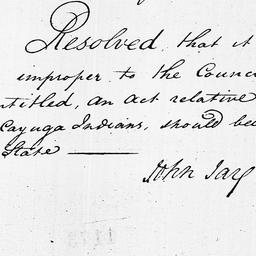 Resolved, that it
improper to the Counc
ntitled, an act relative
Cayuga Indians, should be
State
John Jay